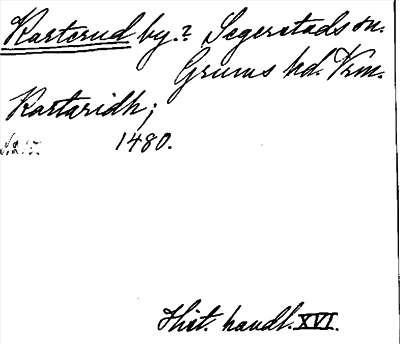 Karterud by.? Segerstads sn.
Grums hd. Vrm.
Kartaridh;
1480.
Hist. handl. XVI.